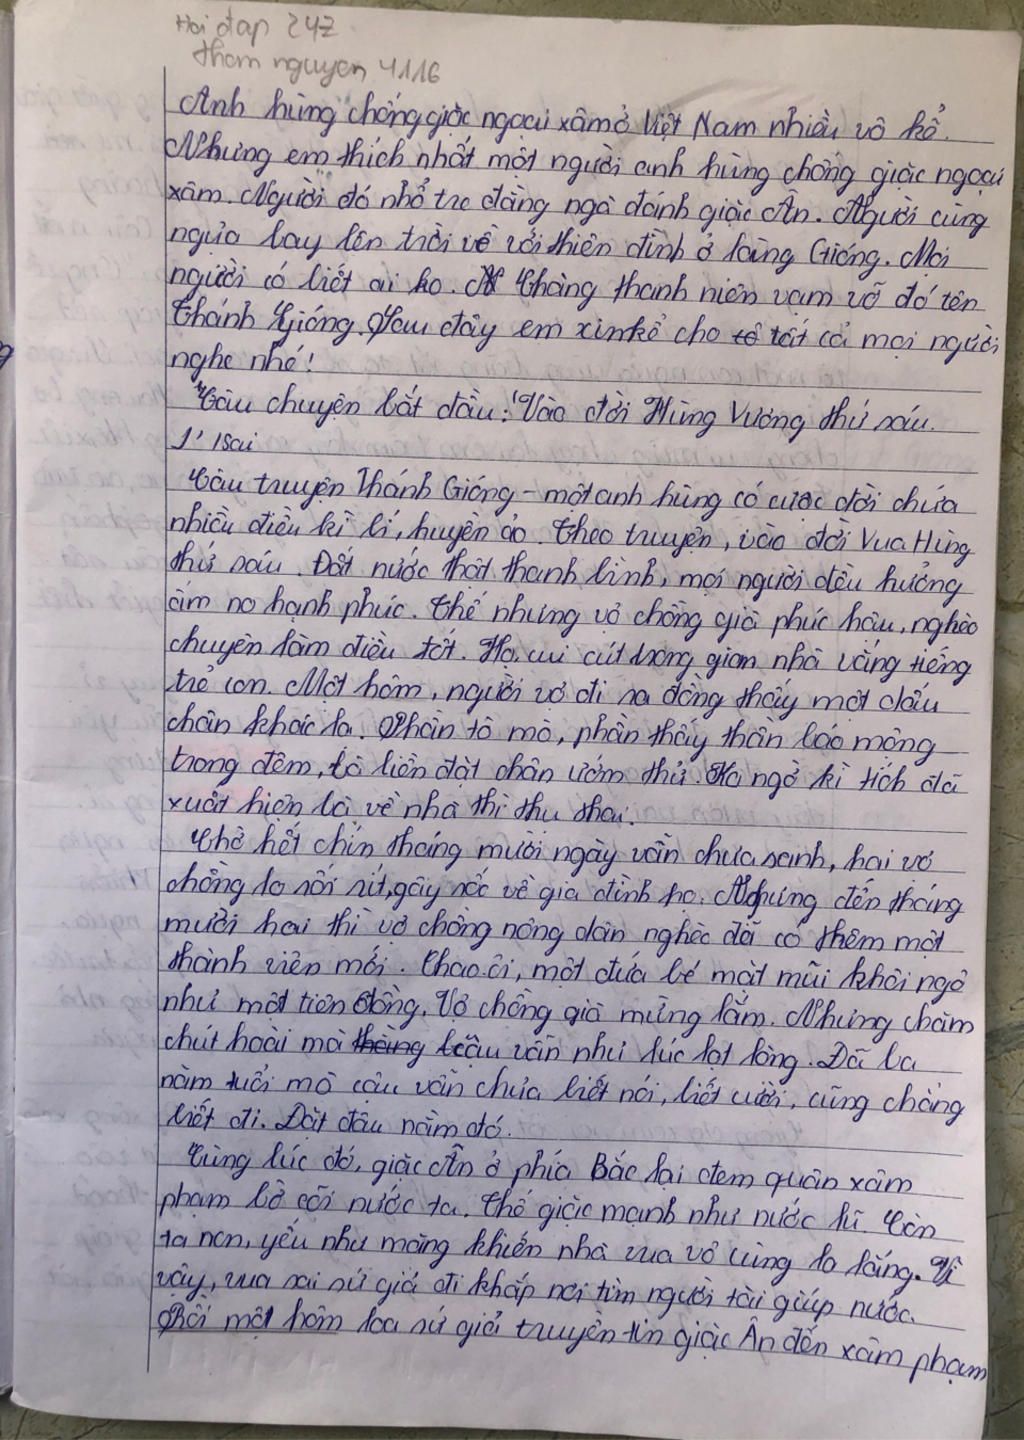 Hỏi đap 247
tham nguyen 4116
Anh hùng chống giặc ngoại xâm ở Việt Nam nhiều vô kể.
Nhưng em thích nhất một người anh hùng chống giặc ngoại
xâm. Người đó nhổ tre đằng ngà đánh giặc Ân. Người cùng
ngựa bay lên trời về với thiên đình ở làng Gióng. Mọi
người có biết ai ko. Chàng thanh niên vạm vỡ đó tên
Thánh Gióng. Sau đây em xin kể cho tất cả mọi người
nghe nhé!
"Câu chuyện bắt đầu: "Vào đời Hùng Vương thứ sáu.
1' sai
Câu truyện Thánh Gióng - một anh hùng có cuộc đời chứa
nhiều điều kì bí, huyền ảo. Theo truyện, vào đời Vua Hùng
thứ sáu. Đất nước thật thanh bình, mọi người đều hưởng
ấm no hạnh phúc. Thế nhưng vợ chồng già phúc hậu, nghèo
chuyên làm điều tốt. Họ cui cút trong gian nhà vắng tiếng
trẻ con. Một hôm, người vợ đi ra đồng thấy một dấu
chân khác lạ. Phần tò mò, phần thấy thần báo mộng
trong đêm, bà liền đặt chân ướm thử. Ko ngờ kì tích đã
xuất hiện bà về nhà thì thụ thai.
Chờ hết chín tháng mười ngày vẫn chưa sanh, hai vợ
chồng lo sốt sít, gây sốc về gia đình họ. Nhưng đến tháng
mười hai thì vợ chồng nông dân nghèo đã có thêm một
thành viên mới. Chao ôi, một đứa bé mặt mũi khôi ngô
như một tiên đồng. Vợ chồng già mừng lắm. Nhưng chăm
chút hoài mà thằng cậu vẫn như lúc lọt lòng. Đã ba
năm tuổi mà cậu vẫn chưa biết nói, biết cười, cũng chẳng
biết đi. Đặt đâu nằm đó.
Cùng lúc đó, giặc Ân ở phía Bắc lại đem quân xâm
phạm bờ cõi nước ta. Thế giặc mạnh như nước lũ. Còn
ta non, yếu như măng khiến nhà vua vô cùng lo lắng. Vì
vậy, vua sai sứ giả đi khắp nơi tìm người tài giúp nước.
Rồi một hôm loa sứ giả truyền tin giặc Ân đến xâm phạm